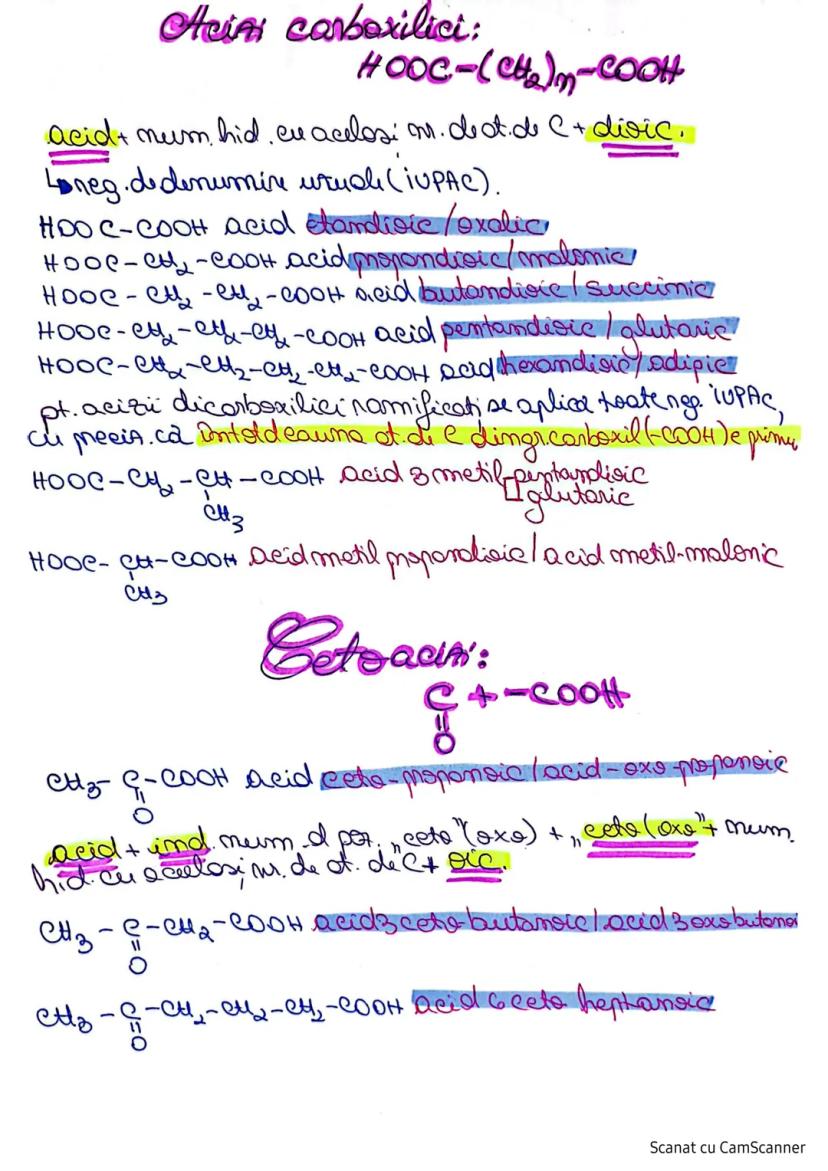 Acizi carboxilici:
HOOC-(CH2)n-COOH
acid + num. hid. cu același nr. de at. de C + dioic.
↳ neg. de denumire uzuale (iUPAC).
HOOC-COOH acid etandioic/oxalic
HOOC-CH2-COOH acid propandioic/malonic
HOOC-CH2-CH2-COOH acid butandioic/succinic
HOOC-CH2-CH2-CH2-COOH acid pentandioic/glutaric
HOOC-CH2-CH2-CH2-CH2-COOH acid hexandioic/adipic
pt. acizii dicarboxilici ramificați se aplică toate reg. iUPAC,
cu preciz. că întotdeauna at. de C din gr. carboxil (-COOH) e primu
HOOC-CH2-CH-COOH acid 3 metil-pentandioic
glutaric
CH3
HOOC-CH-COOH acid metil propandioic/acid metil-malonic
CH3
Cetoacizi:
C + -COOH
O
CH3-C-COOH acid ceto-propanoic/acid-oxo-propanoic
O
acid + ind. num. d poz. „ceto"(oxo) + „ceto(oxo" + num.
hid. cu același nr. de at. de C + oic.
CH3-C-CH2-COOH acid 3 ceto-butanoic/acid 3 oxo butanoi
O
CH3-C-CH2-CH2-CH2-COOH acid 6 ceto heptanoic
O
Scanat cu CamScanner